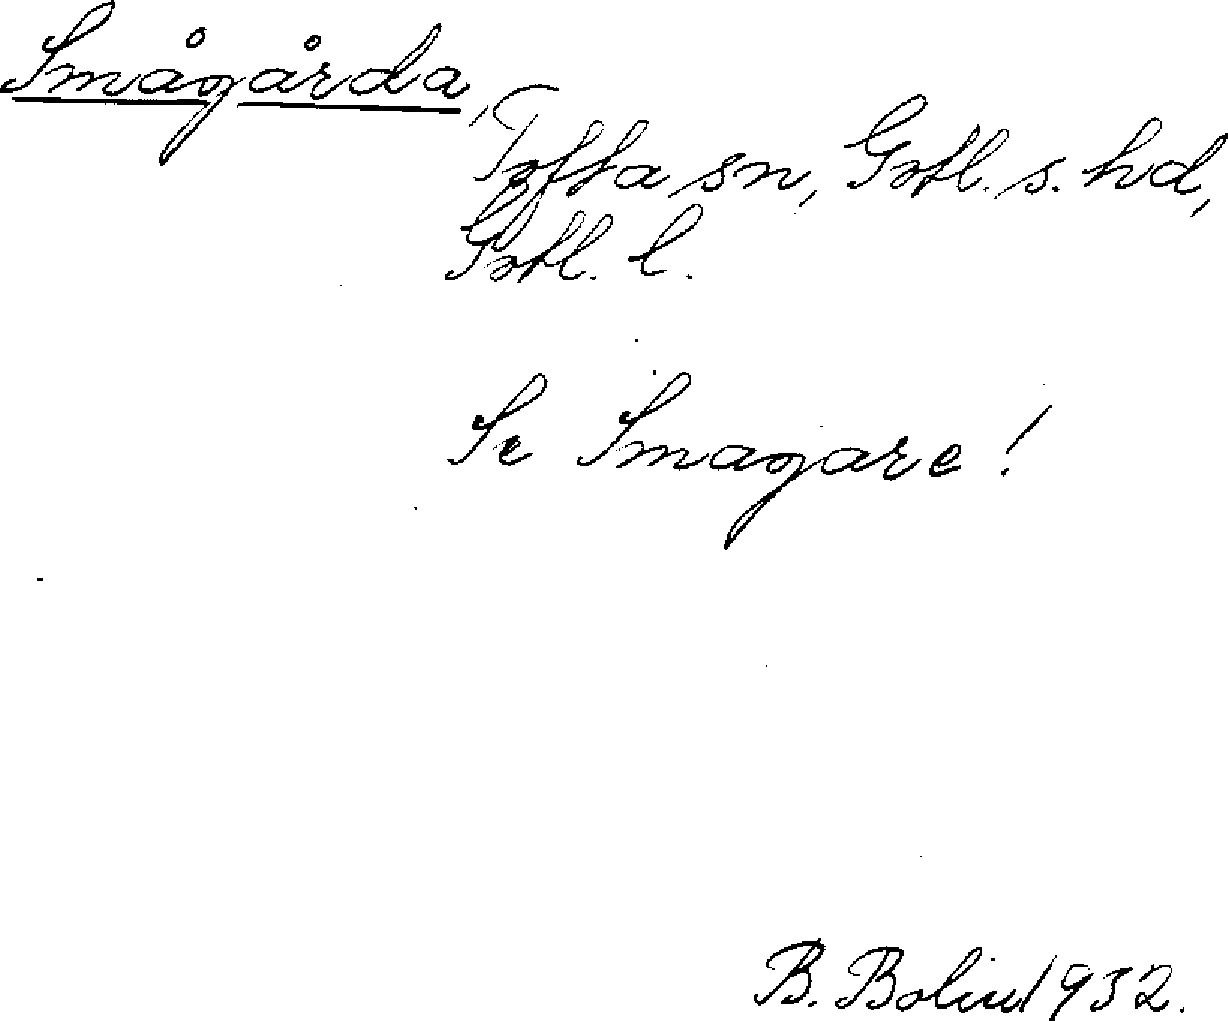 Smågårda,
Tofta sn, Gotl. s. hd,
Gotl. l.
Se Smagare!
B. Bolin 1932.